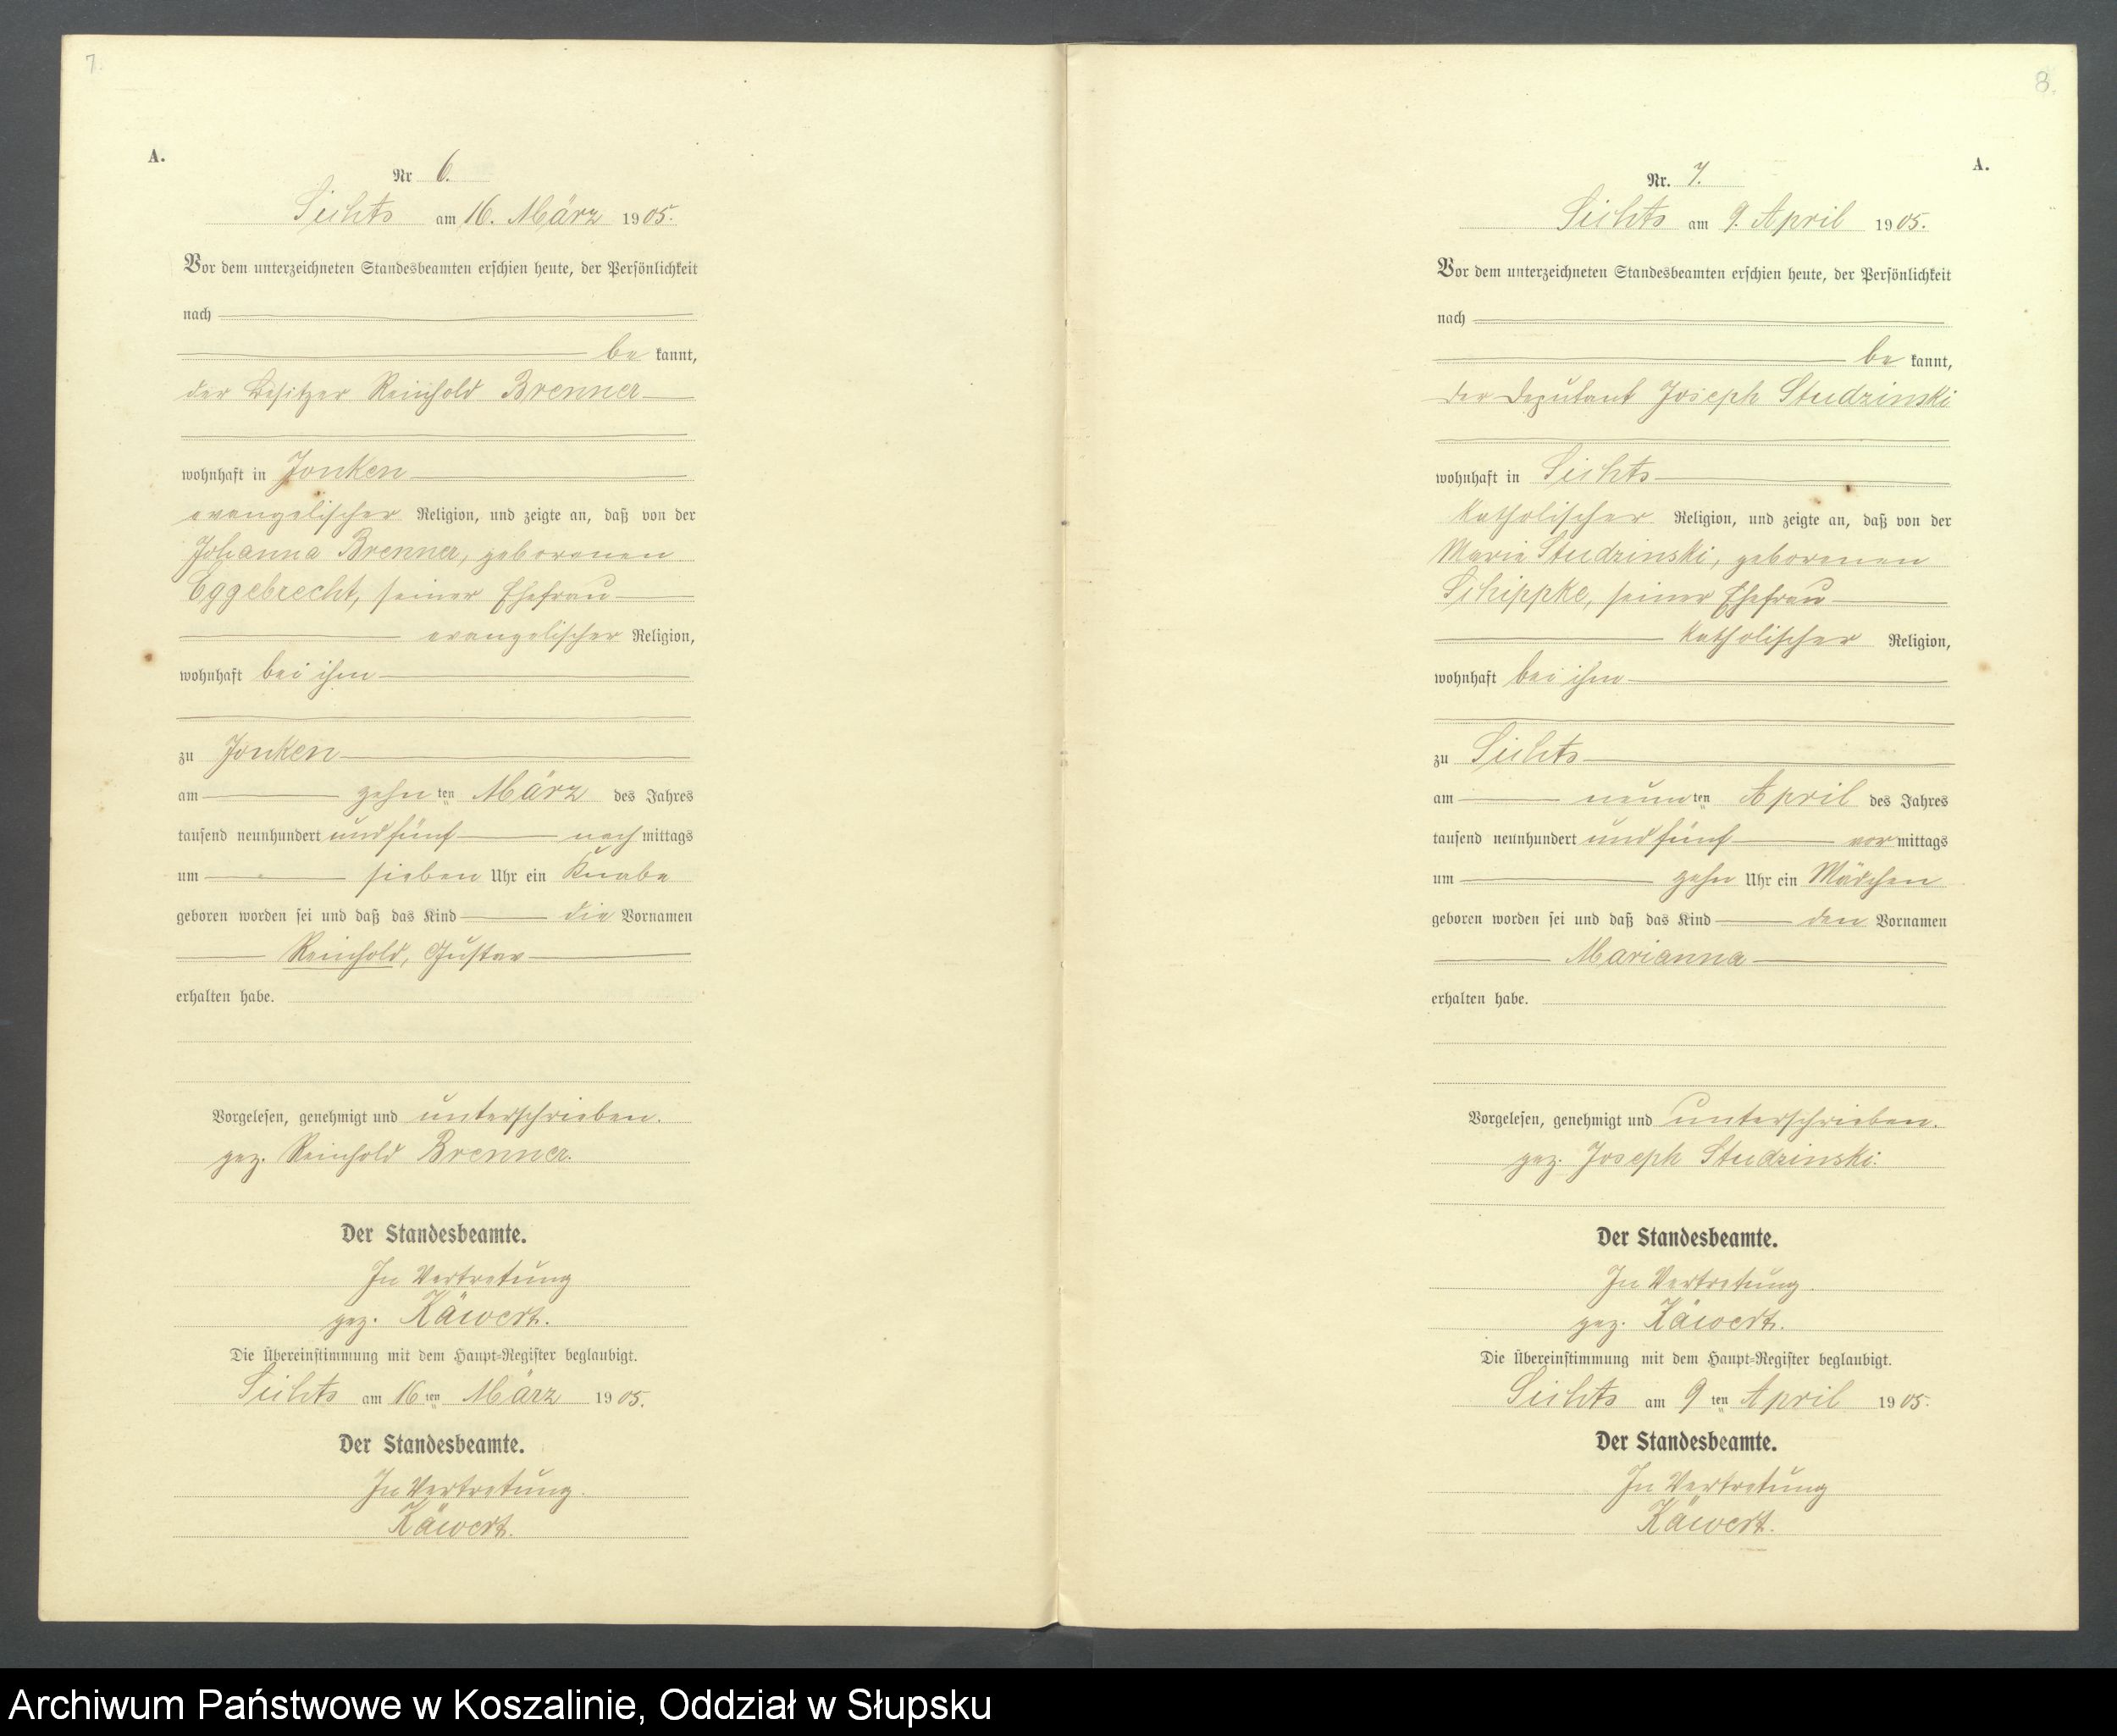 7.
A.
Nr 6.
Sichts am 16. März 1905.
Vor dem unterzeichneten Standesbeamten erschien heute, der Persönlichkeit
nach
be kannt,
der Besitzer Reinhold Brenner
wohnhaft in Jonken
evangelischer Religion, und zeigte an, daß von der
Johanna Brenner, geborenen
Eggebrecht, seiner Ehefrau
evangelischer Religion,
wohnhaft bei ihm
zu Jonken
am zehnten März des Jahres
tausend neunhundert und fünf nach mittags
um sieben Uhr ein Knabe
geboren worden sei und daß das Kind die Vornamen
Reinhold, Gustav
erhalten habe.
Vorgelesen, genehmigt und unterschrieben.
gez. Reinhold Brenner.
Der Standesbeamte.
In Vertretung
gez. Käwert.
Die Übereinstimmung mit dem Haupt-Register beglaubigt.
Sichts am 16ten März 1905.
Der Standesbeamte.
In Vertretung.
Käwert.
8.
A.
Nr. 7.
Sichts am 9. April 1905.
Vor dem unterzeichneten Standesbeamten erschien heute, der Persönlichkeit
nach
be kannt,
der Deputant Joseph Studzinski
wohnhaft in Sichts
katholischer Religion, und zeigte an, daß von der
Marie Studzinski, geborenen
Schippke, seiner Ehefrau
katholischer Religion,
wohnhaft bei ihm
zu Sichts
am neunten April des Jahres
tausend neunhundert und fünf vor mittags
um zehn Uhr ein Mädchen
geboren worden sei und daß das Kind den Vornamen
Marianna
erhalten habe.
Vorgelesen, genehmigt und unterschrieben.
gez. Joseph Studzinski.
Der Standesbeamte.
In Vertretung.
gez. Käwert.
Die Übereinstimmung mit dem Haupt-Register beglaubigt.
Sichts am 9ten April 1905.
Der Standesbeamte.
In Vertretung
Käwert.
Archiwum Państwowe w Koszalinie, Oddział w Słupsku